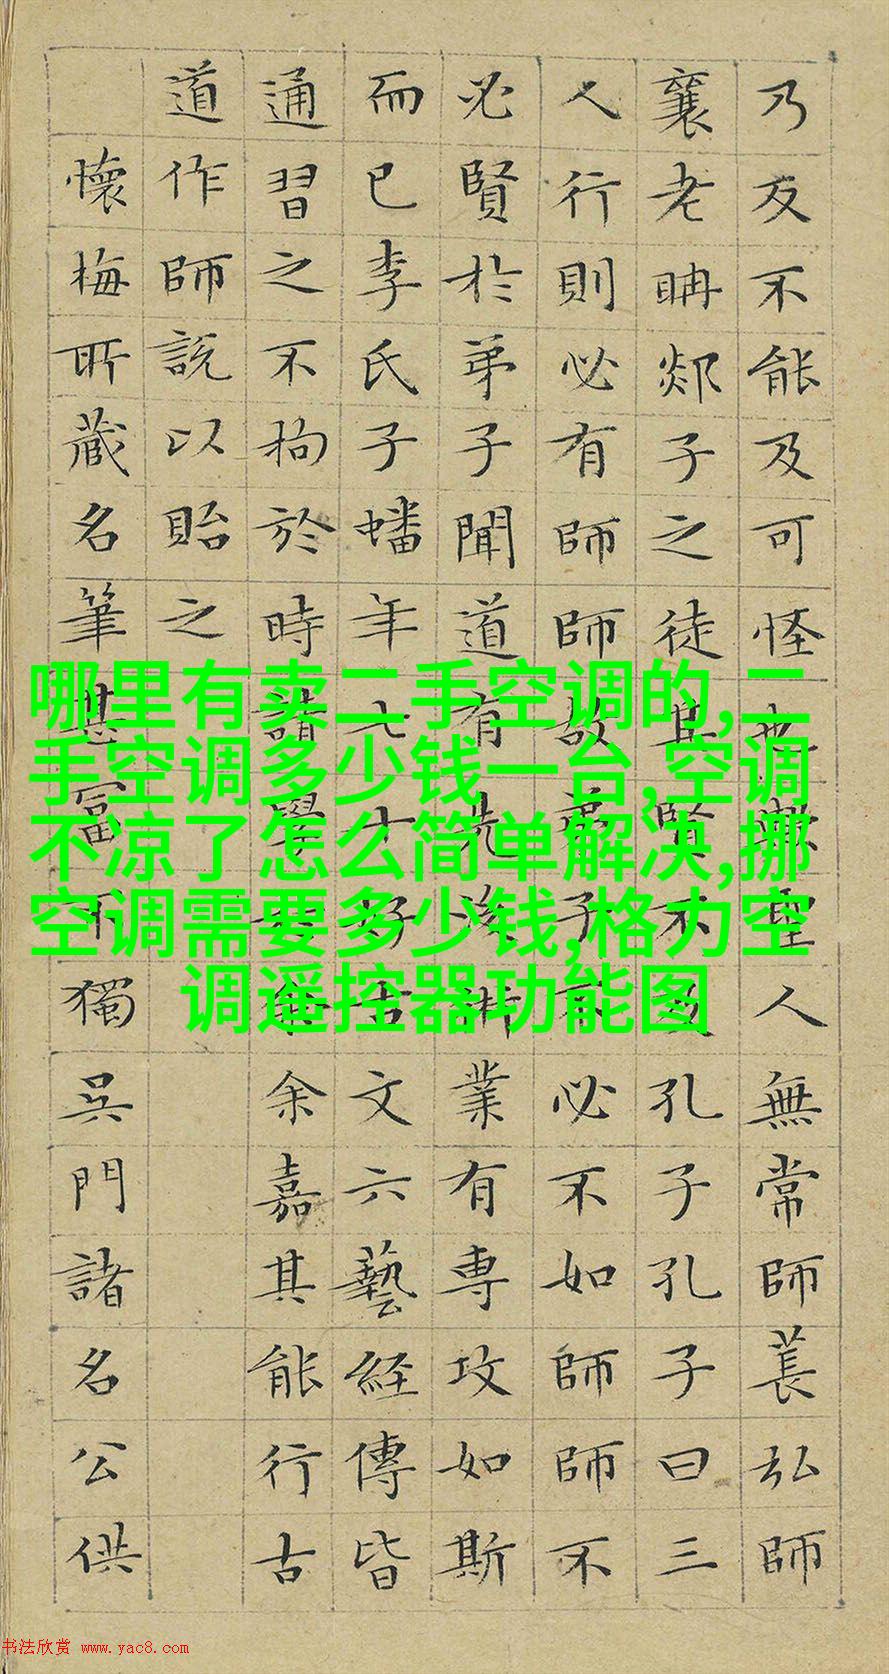 乃反不能及可怪也歟聖人無常師萇弘師
襄老聃郯子之徒其賢不及孔子孔子曰三
人行則必有師師故弟子不必不如師師不
必賢於弟子聞道有先後術業有專攻如斯
而已李氏子蟠年七十好古文六藝経傳皆
通習之不拘於時請學於余余嘉其能行古
道作師説以貽之
懷梅所藏名筆甚富不獨吳門諸名公供
哪里有卖二手空调的,二
手空调多少钱一台,空调
不凉了怎么简单解决,挪
空调需要多少钱,格力空
调遥控器功能图
书法欣赏 www.yac8.com